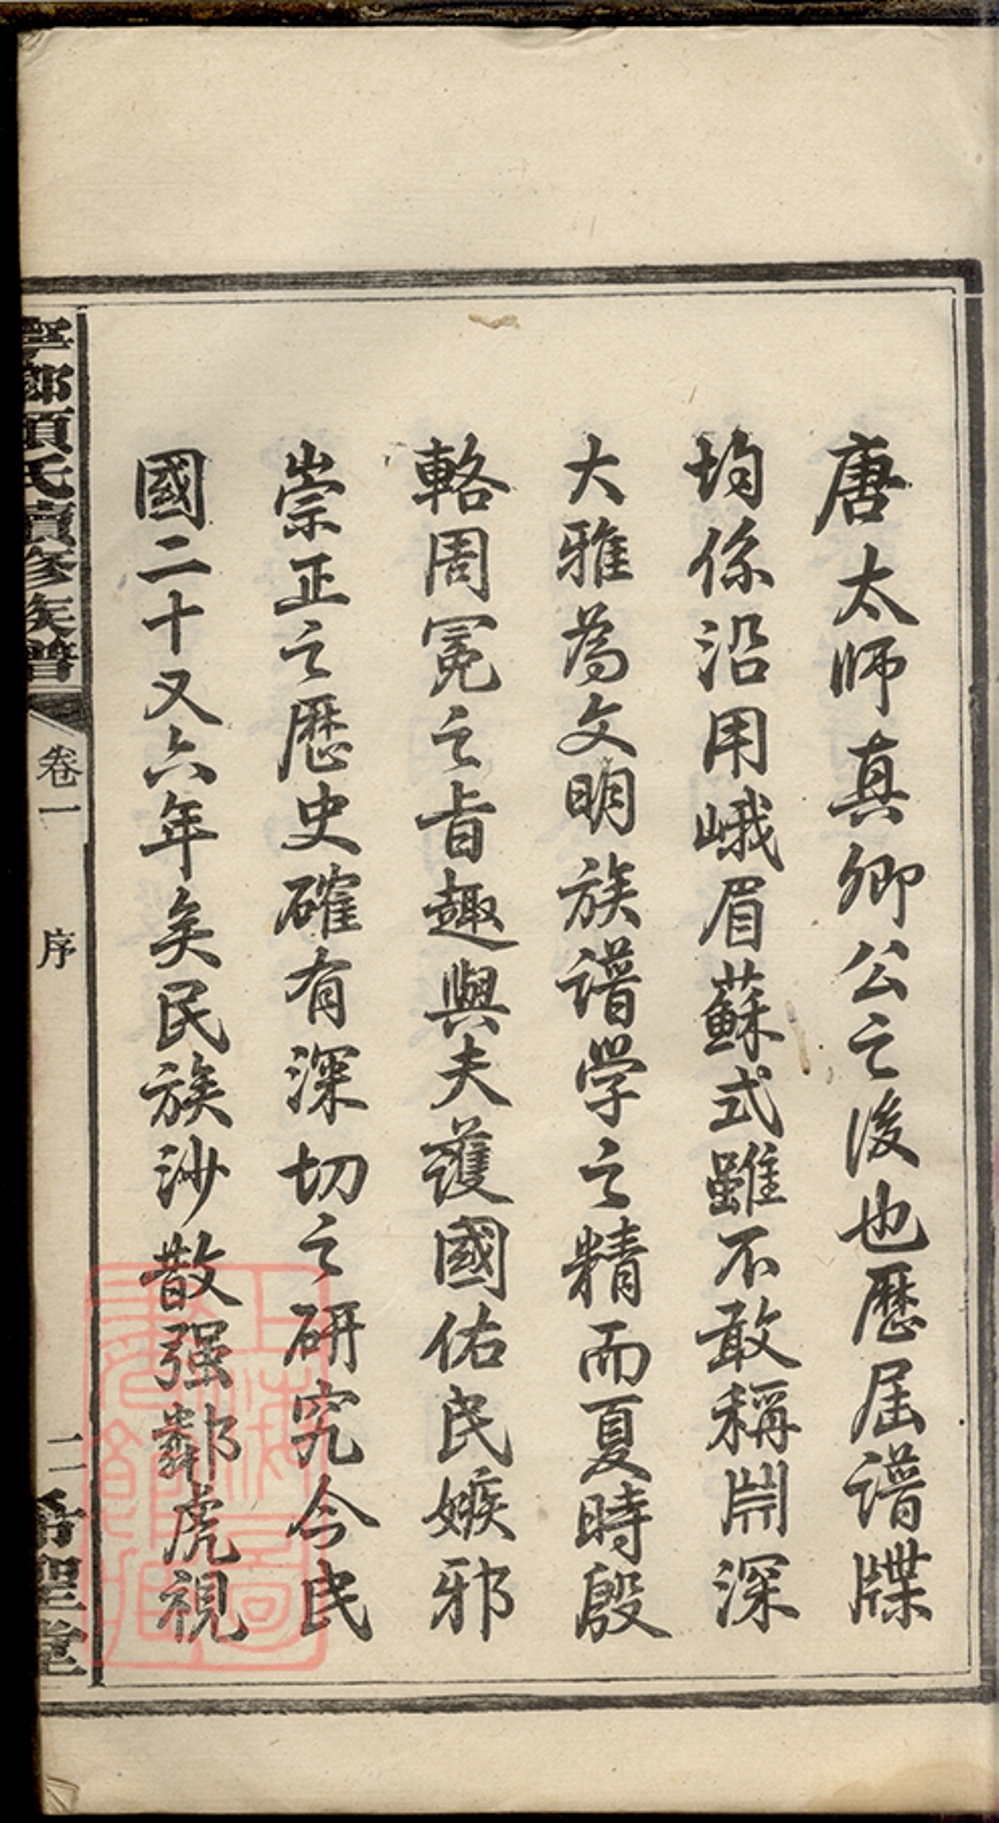 唐太師真卿公之後也歷屆譜牒
均係沿用峨眉蘇式雖不敢稱淵深
大雅為文明族譜学之精而夏時殷
輅周冕之旨趣與夫護國佑民嫉邪
崇正之歷史確有深切之研究今民
國二十又六年矣民族沙散强鄰虎視
寧鄉顏氏續修族譜
卷一
序
二
聖堂
上海圖書館藏